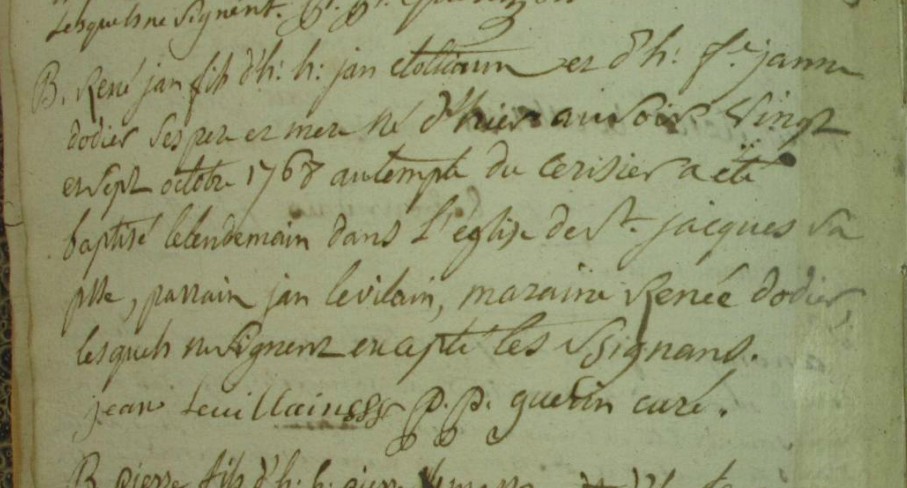 lesquels ne signent. P. P.
B. René jan fils d'h: h: jan et d'h: f.e janne
dodier ses pere et mere né d'hier au soir vingt
et sept octobre 1768 au temple du cerisier a été
baptisé le lendemain dans l'église de St. jacques sa
psse, parrain jan levilain, maraine Renée dodier
lesquels ne signent excepté les ssignans.
jean Leuillain P. P. guerin curé.
B pierre fils d'h: h: pierre